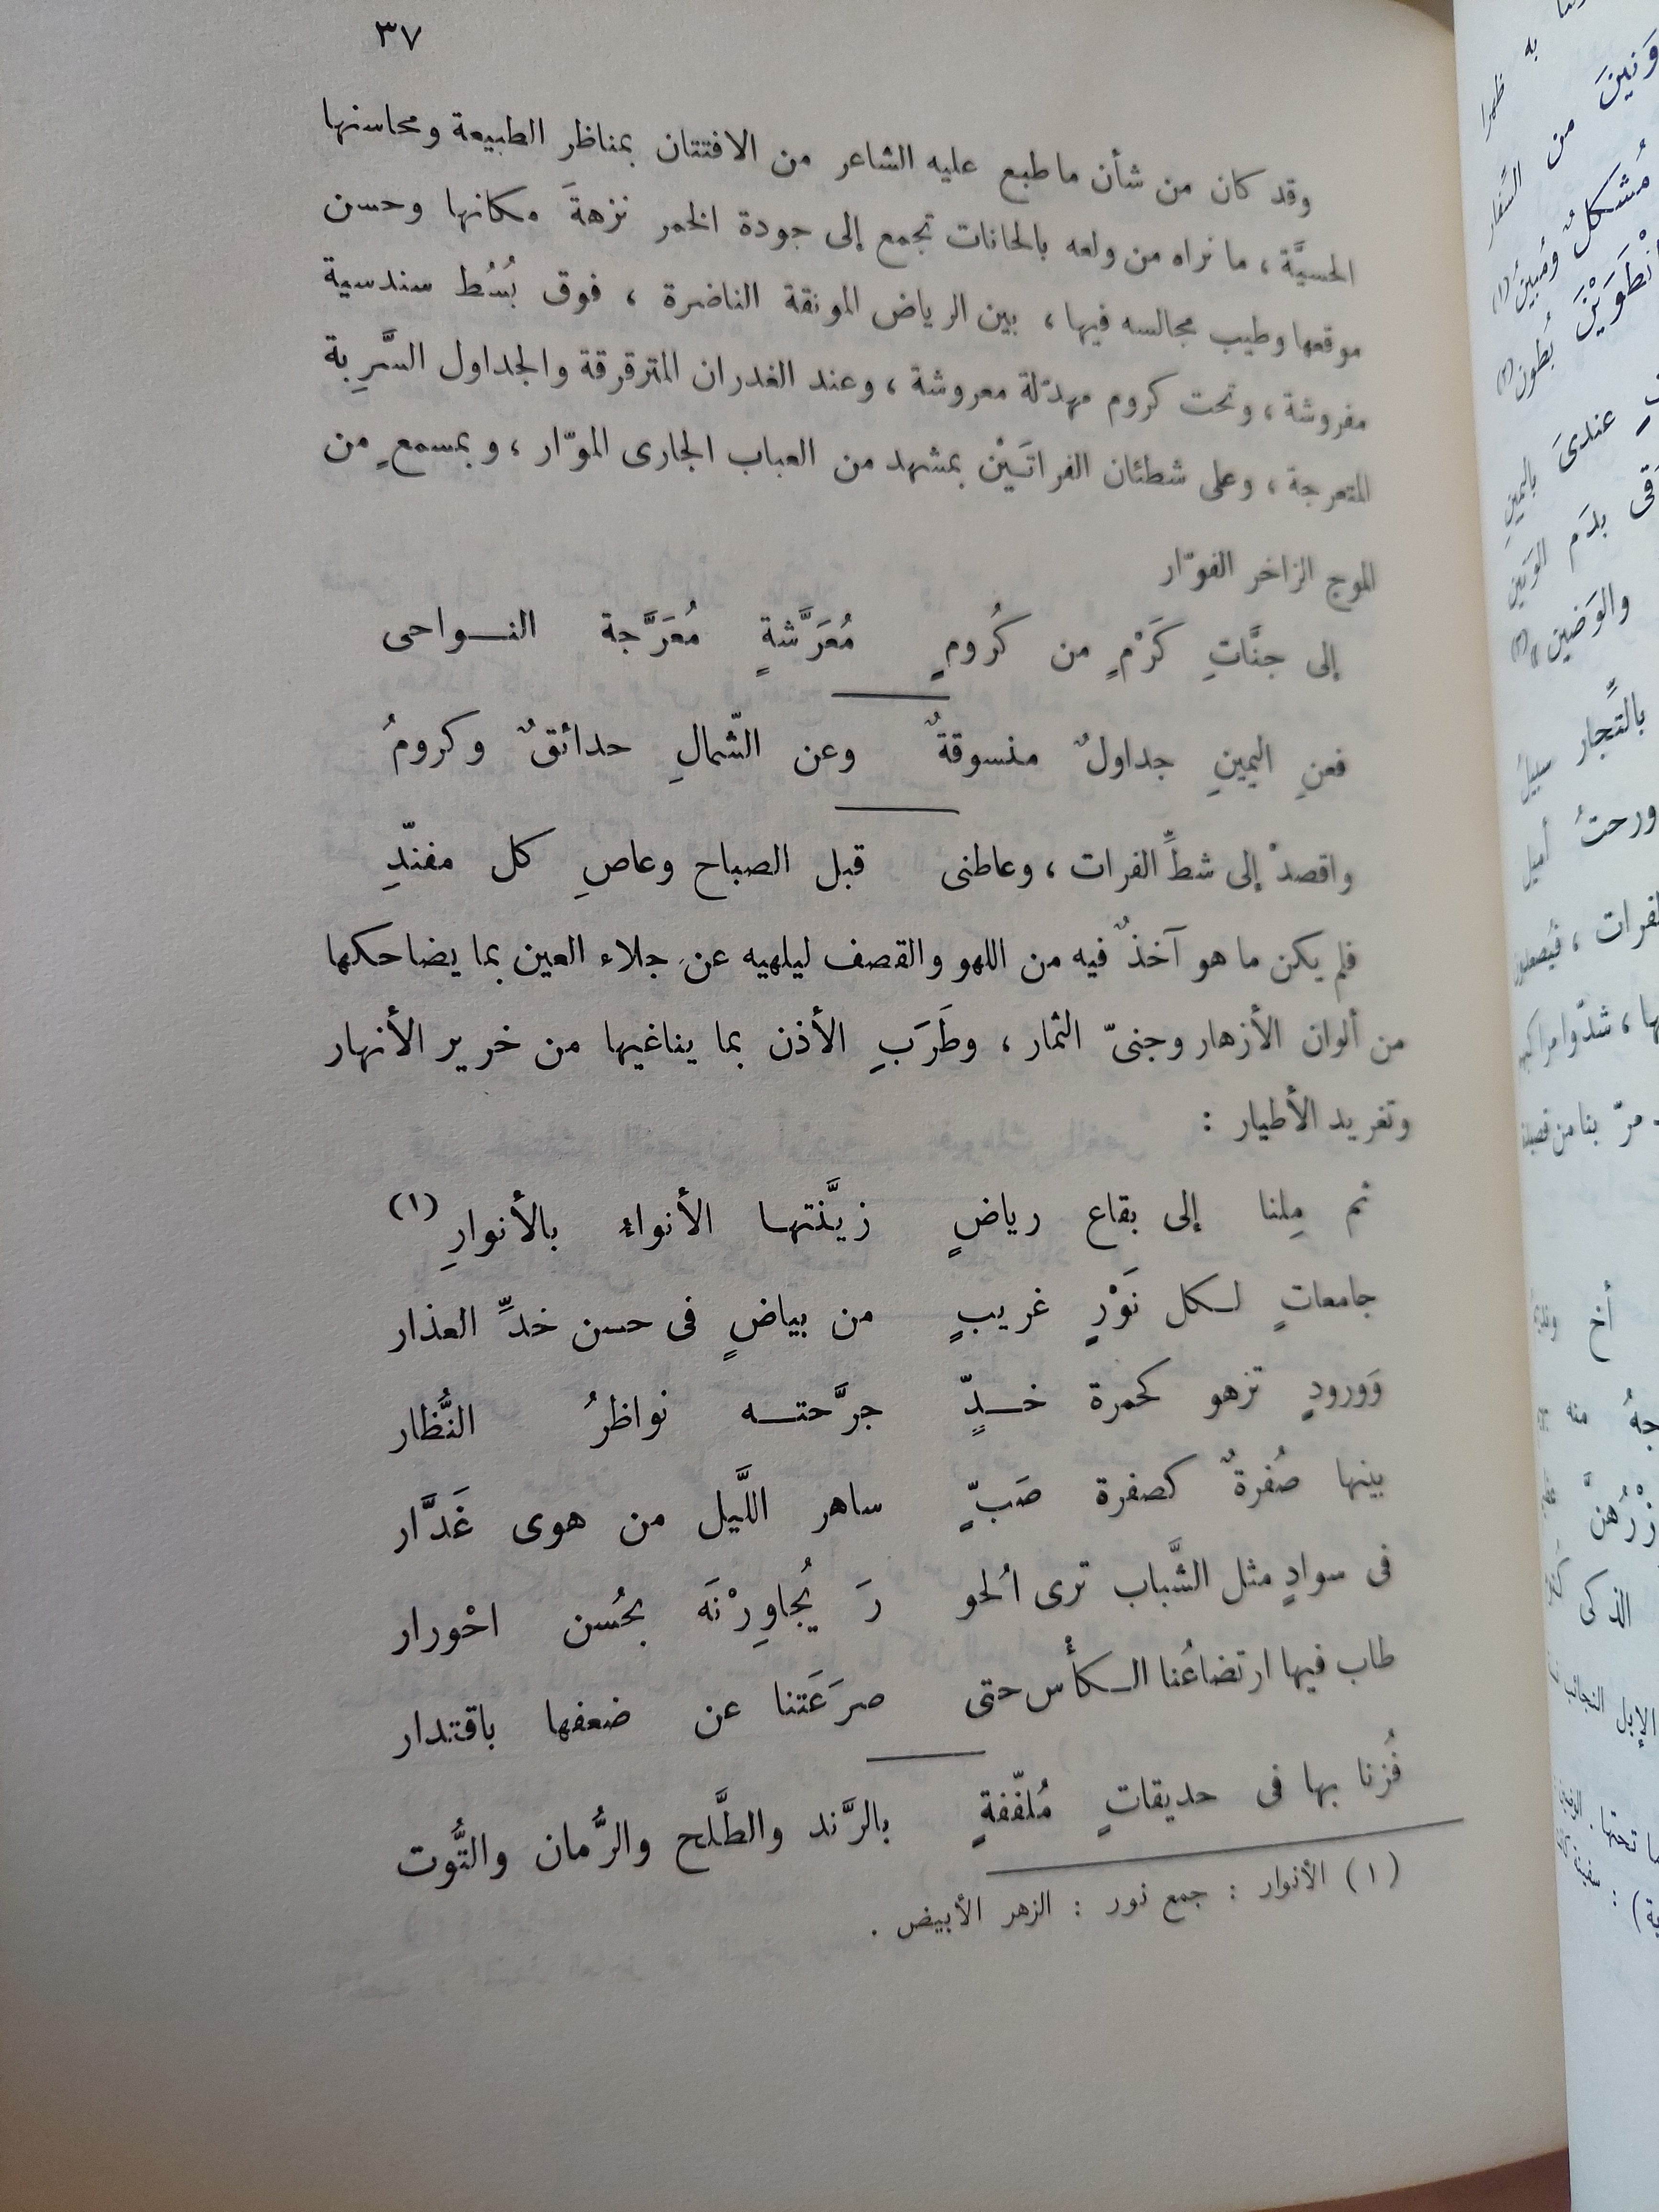 ٣٧
وقد كان من شأن ما طبع عليه الشاعر من الافتتان بمناظر الطبيعة ومحاسنها
الحسيَّة ، ما نراه من ولعه بالحانات تجمع إلى جودة الخمر نزهةَ مكانها وحسن
موقعها وطيب مجالسه فيها ، بين الرياض المونقة الناضرة ، فوق بُسُط سندسية
مفروشة ، وتحت كروم مهدّلة معروشة ، وعند الغدران المترقرقة والجداول السَّرِبة
المتعرجة ، وعلى شطئان الفراتَيْن بمشهد من العباب الجارى الموّار ، وبمسمعٍ من
الموج الزاخر الفوّار
إلى جنَّاتِ كَرْمٍ من كُرُومٍ مُعَرَّشةٍ مُعَرَّجة النـواحى
فعنِ اليمينِ جداولٌ منسوقةٌ وعن الشّمالِ حدائقٌ وكرومُ
واقصدْ إلى شطِّ الفرات ، وعاطنى قبل الصباح وعاصِ كل مفنّدِ
فلم يكن ما هو آخذٌ فيه من اللهو والقصف ليلهيه عن جلاء العين بما يضاحكها
من ألوان الأزهار وجنىّ الثمار ، وطَرَبِ الأذن بما يناغيها من خرير الأنهار
وتغريد الأطيار :
ثم مِلنا إلى بقاع رياضٍ زيَّنتهـا الأنواء بالأنوارِ (١)
جامعاتٍ لـكل نَوْرٍ غريبٍ من بياضٍ فى حسن خدِّ العذار
وَورودٍ تزهو كحمرة خـدٍّ جرَّحتـه نواظرُ النُّظار
بينها صُفرةٌ كصفرة صَبٍّ ساهر اللَّيل من هوى غَدَّار
فى سوادٍ مثل الشَّباب ترى الُحو رَ يُجاوِرْنَه بحُسن احْورار
طاب فيها ارتضاعُنا الـكأْس حتى صرَعَتنا عن ضعفها باقتدار
فُزنا بها فى حديقاتٍ مُلفّفةٍ بالرَّند والطَّلح والرُّمان والتُّوت
(١) الأنوار : جمع نور : الزهر الأبيض .